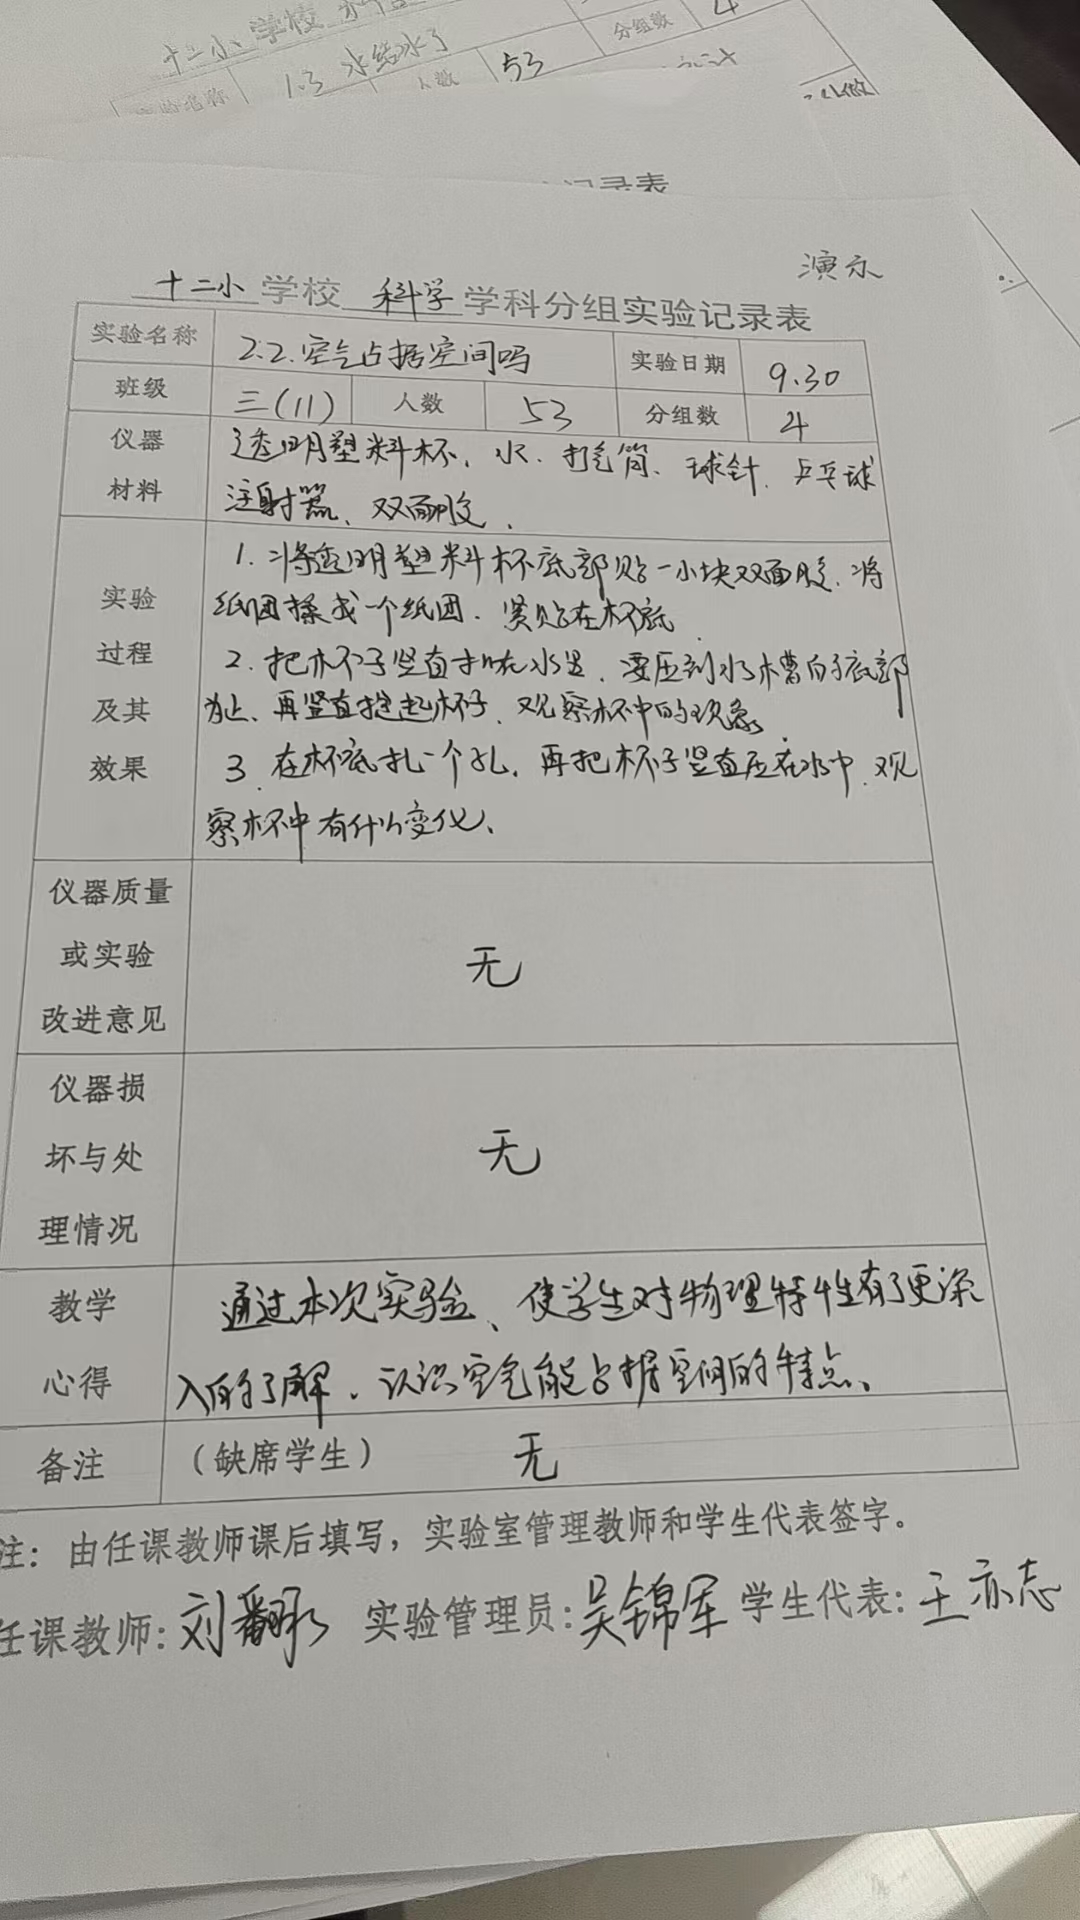 十二小学校
1.3 水结冰了 人数 53 分组数 4
记录表
演示
十二小 学校 科学 学科分组实验记录表
实验名称 2.2.空气占据空间吗 实验日期 9.30
班级 三(11) 人数 53 分组数 4
仪器材料 透明塑料杯、水、打气筒、球针、乒乓球
注射器、双面胶、
实验过程及其效果 1.将透明塑料杯底部贴一小块双面胶、将
纸团揉成一个纸团、紧贴在杯底
2.把杯子竖直扣在水里、要压到水槽的底部
为止、再竖直提起杯子、观察杯中的现象。
3.在杯底扎一个孔,再把杯子竖直压在水中、观
察杯中有什么变化、
仪器质量或实验改进意见 无
仪器损坏与处理情况 无
教学心得 通过本次实验、使学生对物理特性有了更深
入的了解、认识空气能占据空间的特点、
备注 (缺席学生) 无
注:由任课教师课后填写,实验室管理教师和学生代表签字。
任课教师:刘 实验管理员:吴锦军 学生代表:王亦志